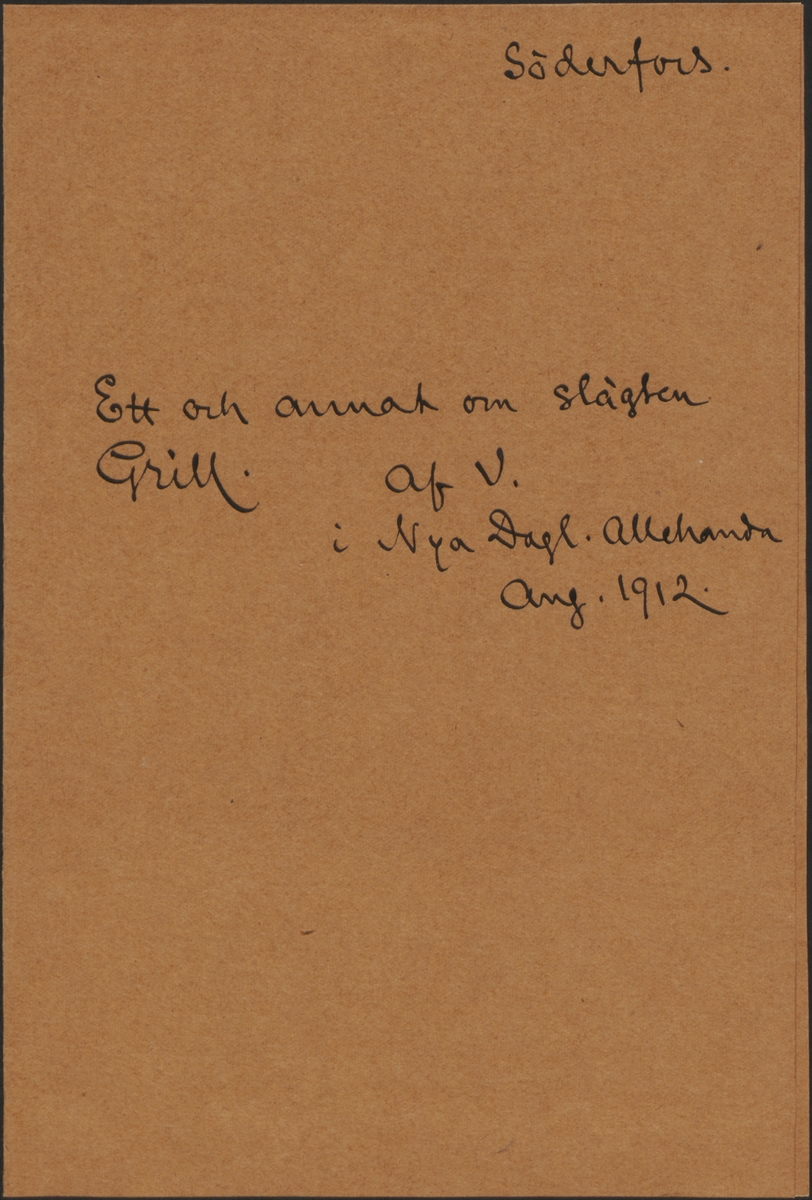 Söderfors.
Ett och annat om slägten
Grill. Af V.
i Nya Dagl. Allehanda
Aug. 1912.